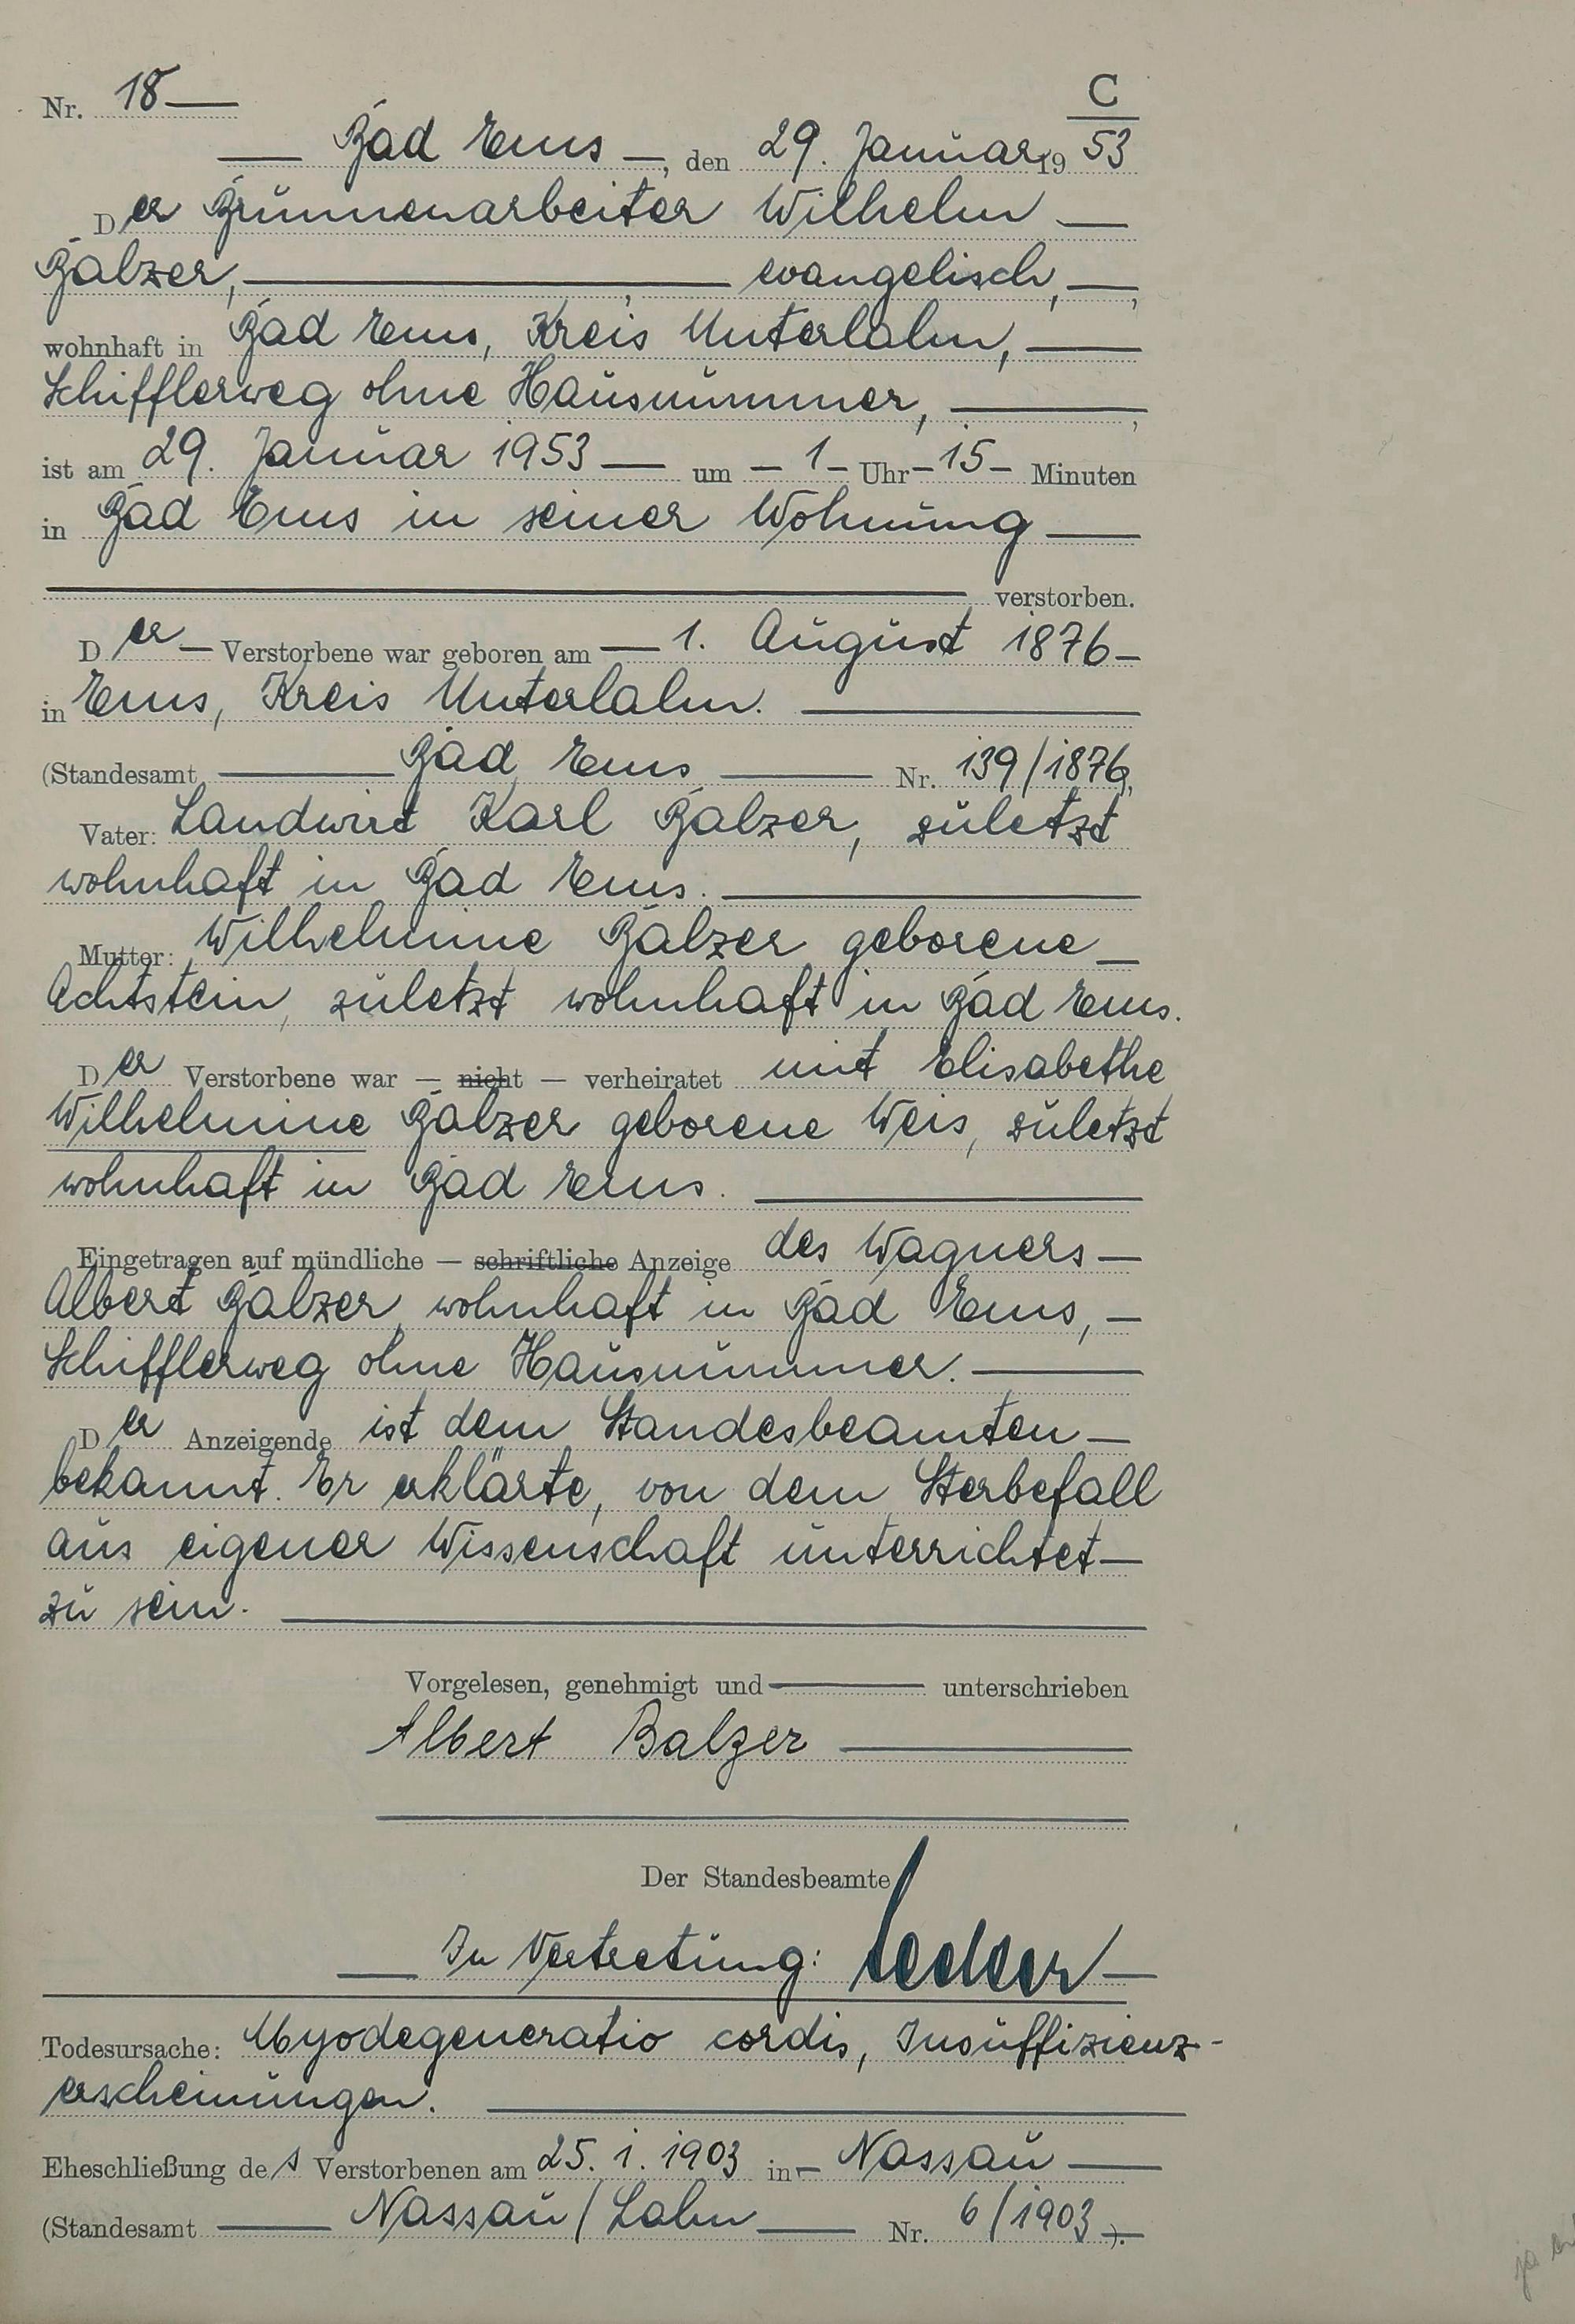 C
Nr. 18
Bad Ems, den 29. Januar 1953
Der Brunnenarbeiter Wilhelm
Balzer, evangelisch,
wohnhaft in Bad Ems, Kreis Unterlahn,
Schifflerweg ohne Hausnummer,
ist am 29. Januar 1953 um - 1 - Uhr - 15 - Minuten
in Bad Ems in seiner Wohnung
verstorben.
Der Verstorbene war geboren am 1. August 1876
in Ems, Kreis Unterlahn.
(Standesamt Bad Ems Nr. 139/1876)
Vater: Landwirt Karl Balzer, zuletzt
wohnhaft in Bad Ems.
Mutter: Wilhelmine Balzer geborene
Achtstein, zuletzt wohnhaft in Bad Ems.
Der Verstorbene war — nicht — verheiratet mit Elisabethe
Wilhelmine Balzer geborene Weis, zuletzt
wohnhaft in Bad Ems.
Eingetragen auf mündliche — schriftliche Anzeige des Wagners
Albert Balzer, wohnhaft in Bad Ems,
Schifflerweg ohne Hausnummer.
Der Anzeigende ist dem Standesbeamten
bekannt. Er erklärte, von dem Sterbefall
aus eigener Wissenschaft unterrichtet
zu sein.
Vorgelesen, genehmigt und unterschrieben
Albert Balzer
Der Standesbeamte
In Vertretung:
Todesursache: Myodegeneratio cordis, Insuffizienz-
erscheinungen.
Eheschließung des Verstorbenen am 25. 1. 1903 in Nassau
(Standesamt Nassau/Lahn Nr. 6/1903).